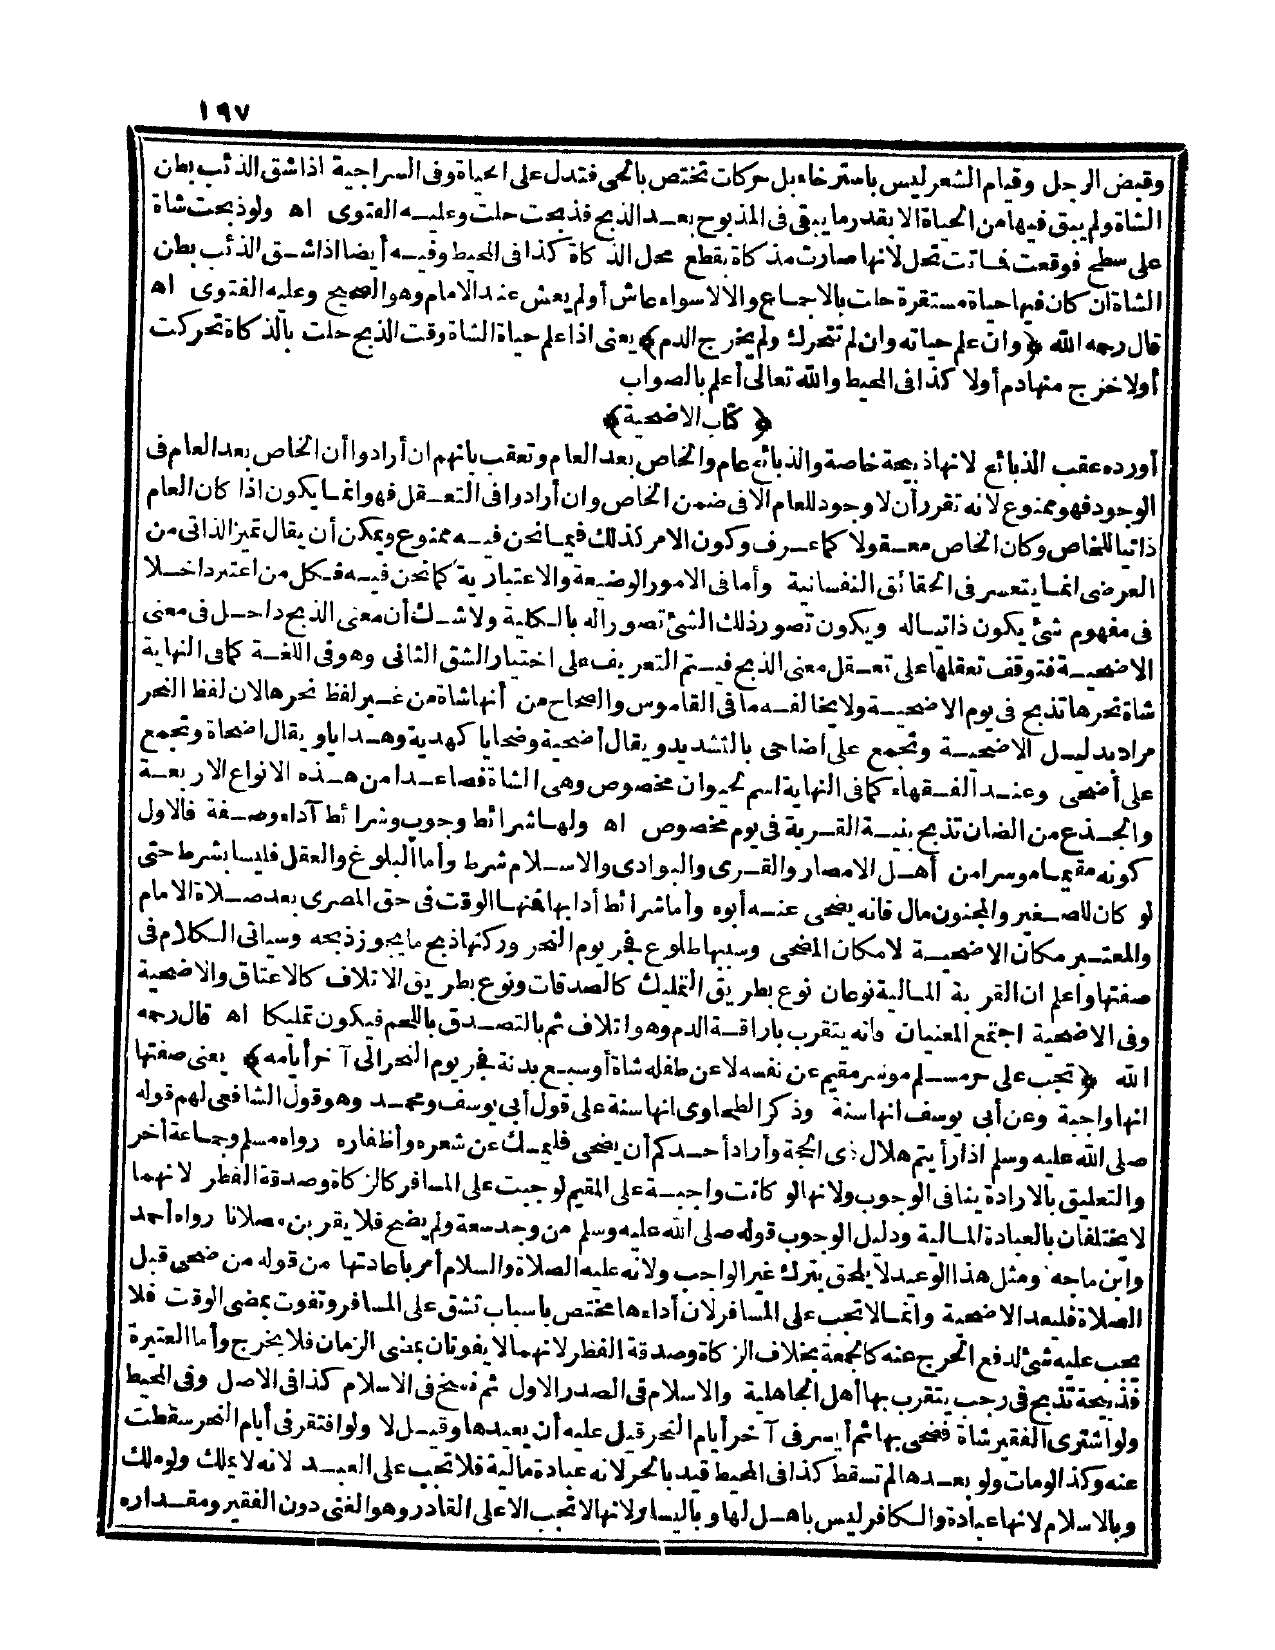 ١٩٧
وقبض الرجل وقيام الشعر ليس باسترخاء بل حركات تختص بالحى فتدل على الحياة وفى السراجية اذا شق الذئب بطن
الشاة ولم يبق فيها من الحياة الا بقدر ما يبقى فى المذبوح بعد الذبح فذبحت حلت وعليه الفتوى اه ولو ذبحت شاة
على سطح فوقعت فماتت تحل لانها صارت مذكاة بقطع محل الذكاة كذا فى المحيط وفيه أيضا اذا شق الذئب بطن
الشاة ان كان فيها حياة مستقرة حلت بالاجماع والا لا سواء عاش أو لم يعش عند الامام وهو الصحيح وعليه الفتوى اه
قال رحمه الله ﴿وان علم حياته وان لم تتحرك ولم يخرج الدم﴾ يعنى اذا علم حياة الشاة وقت الذبح حلت بالذكاة تحركت
أولا خرج منها دم أولا كذا فى المحيط والله تعالى أعلم بالصواب
﴿كتاب الاضحية﴾
أورده عقب الذبائح لانها ذبيحة خاصة والذبائح عام والخاص بعد العام وتعقب بانهم ان أرادوا أن الخاص بعد العام فى
الوجود فهو ممنوع لانه تقرر أن لا وجود للعام الا فى ضمن الخاص وان أرادوا فى التعقل فهو انما يكون اذا كان العام
ذاتيا للخاص وكان الخاص معقولا كما عرف وكون الامر كذلك فيما نحن فيه ممنوع ويمكن أن يقال تميز الذاتى من
العرضى انما يتعسر فى الحقائق النفسانية وأما فى الامور الوضيعة والاعتبارية كما نحن فيه فكل من اعتبر داخلا
فى مفهوم شئ يكون ذاتيا له ويكون تصور ذلك الشئ تصورا له بالكلية ولا شك أن معنى الذبح داخل فى معنى
الاضحية فتوقف تعقلها على تعقل معنى الذبح فيتم التعريف على اختيار الشق الثانى وهو فى اللغة كما فى النهاية
شاة نحرها تذبح فى يوم الاضحية ولا يخالفه ما فى القاموس والصحاح من أنها شاة من غير لفظ نحرها لان لفظ النحر
مراد بدليل الاضحية وتجمع على أضاحى بالتشديد ويقال أضحية وضحايا كهدية وهدايا ويقال اضحاة وتجمع
على أضحى وعند الفقهاء كما فى النهاية اسم لحيوان مخصوص وهى الشاة فصاعدا من هذه الانواع الاربعة
والجذع من الضان تذبح بنية القربة فى يوم مخصوص اه ولها شرائط وجوب وشرائط آداء وصفة فالاول
كونه مقيما موسرا من أهل الامصار والقرى والبوادى والاسلام شرط وأما البلوغ والعقل فليسا بشرط حتى
لو كان للصغير والمجنون مال فانه يضحى عنه أبوه وأما شرائط أدابها فمنها الوقت فى حق المصرى بعد صلاة الامام
والمعتبر مكان الاضحية لا مكان المضحى وسببها طلوع فجر يوم النحر وركنها ذبح ما يجوز ذبحه وسياتى الكلام فى
صفتها واعلم ان القربة المالية نوعان نوع بطريق التمليك كالصدقات ونوع بطريق الاتلاف كالاعتاق والاضحية
وفى الاضحية اجتمع المعنيان فانه يتقرب باراقة الدم وهو اتلاف ثم بالتصدق باللحم فيكون تمليكا اه قال رحمه
الله ﴿تجب على حر مسلم موسر مقيم عن نفسه لا عن طفله شاة أو سبع بدنة فجر يوم النحر الى آخر أيامه﴾ يعنى صفتها
انها واجبة وعن أبى يوسف انها سنة وذكر الطحاوى انها سنة على قول أبى يوسف ومحمد وهو قول الشافعى لهم قوله
صلى الله عليه وسلم اذا رأيتم هلال ذى الحجة وأراد أحدكم أن يضحى فليمسك عن شعره وأظفاره رواه مسلم وجماعة أخر
والتعليق بالارادة ينافى الوجوب ولانها لو كانت واجبة على المقيم لوجبت على المسافر كالزكاة وصدقة الفطر لانهما
لا يختلفان بالعبادة المالية ودليل الوجوب قوله صلى الله عليه وسلم من وجد سعة ولم يضح فلا يقربن مصلانا رواه أحمد
وابن ماجه ومثل هذا الوعيد لا يلحق بترك غير الواجب ولانه عليه الصلاة والسلام أمر باعادتها من قوله من ضحى قبل
الصلاة فليعد الاضحية وانما لا تجب على المسافر لان أداءها مختص باسباب تشق على المسافر وتفوت بمضى الوقت فلا
يجب عليه شئ لدفع الحرج عنه كالجمعة بخلاف الزكاة وصدقة الفطر لانهما لا يفوتان بمضى الزمان فلا يخرج وأما العتيرة
فذبيحة تذبح فى رجب يتقرب بها أهل الجاهلية والاسلام فى الصدر الاول ثم نسخ فى الاسلام كذا فى الاصل وفى المحيط
ولو اشترى الفقير شاة فضحى بها ثم أيسر فى آخر أيام النحر قيل عليه أن يعيدها وقيل لا ولو افتقر فى أيام النحر سقطت
عنه وكذا لو مات ولو بعدها لم تسقط كذا فى المحيط قيد بالحر لانه عبادة مالية فلا تجب على العبد لانه لا يملك ولو ملك
وبالاسلام لانها عبادة والكافر ليس باهل لها وباليسار لانها لا تجب الا على القادر وهو الغنى دون الفقير ومقداره